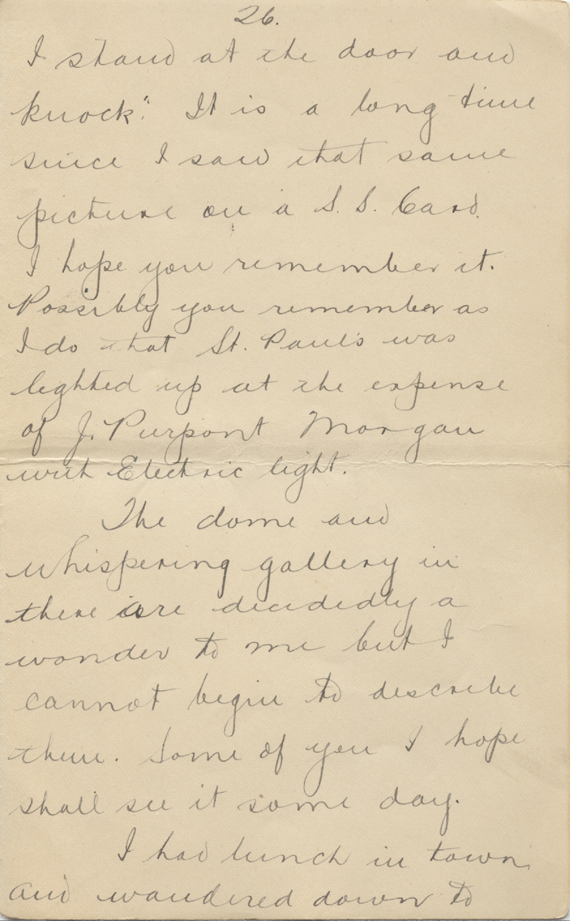 26.
I stand at the door and
knock". It is a long time
since I saw that same
picture on a S. S. Card.
I hope you remember it.
Possibly you remember as
I do that St. Paul's was
lighted up at the expense
of J. Purpont Morgan
with Electric light.
The dome and
whispering gallery in
there are decidedly a
wonder to me but I
cannot begin to describe
them. Some of you I hope
shall see it some day.
I had lunch in town
and wandered down to